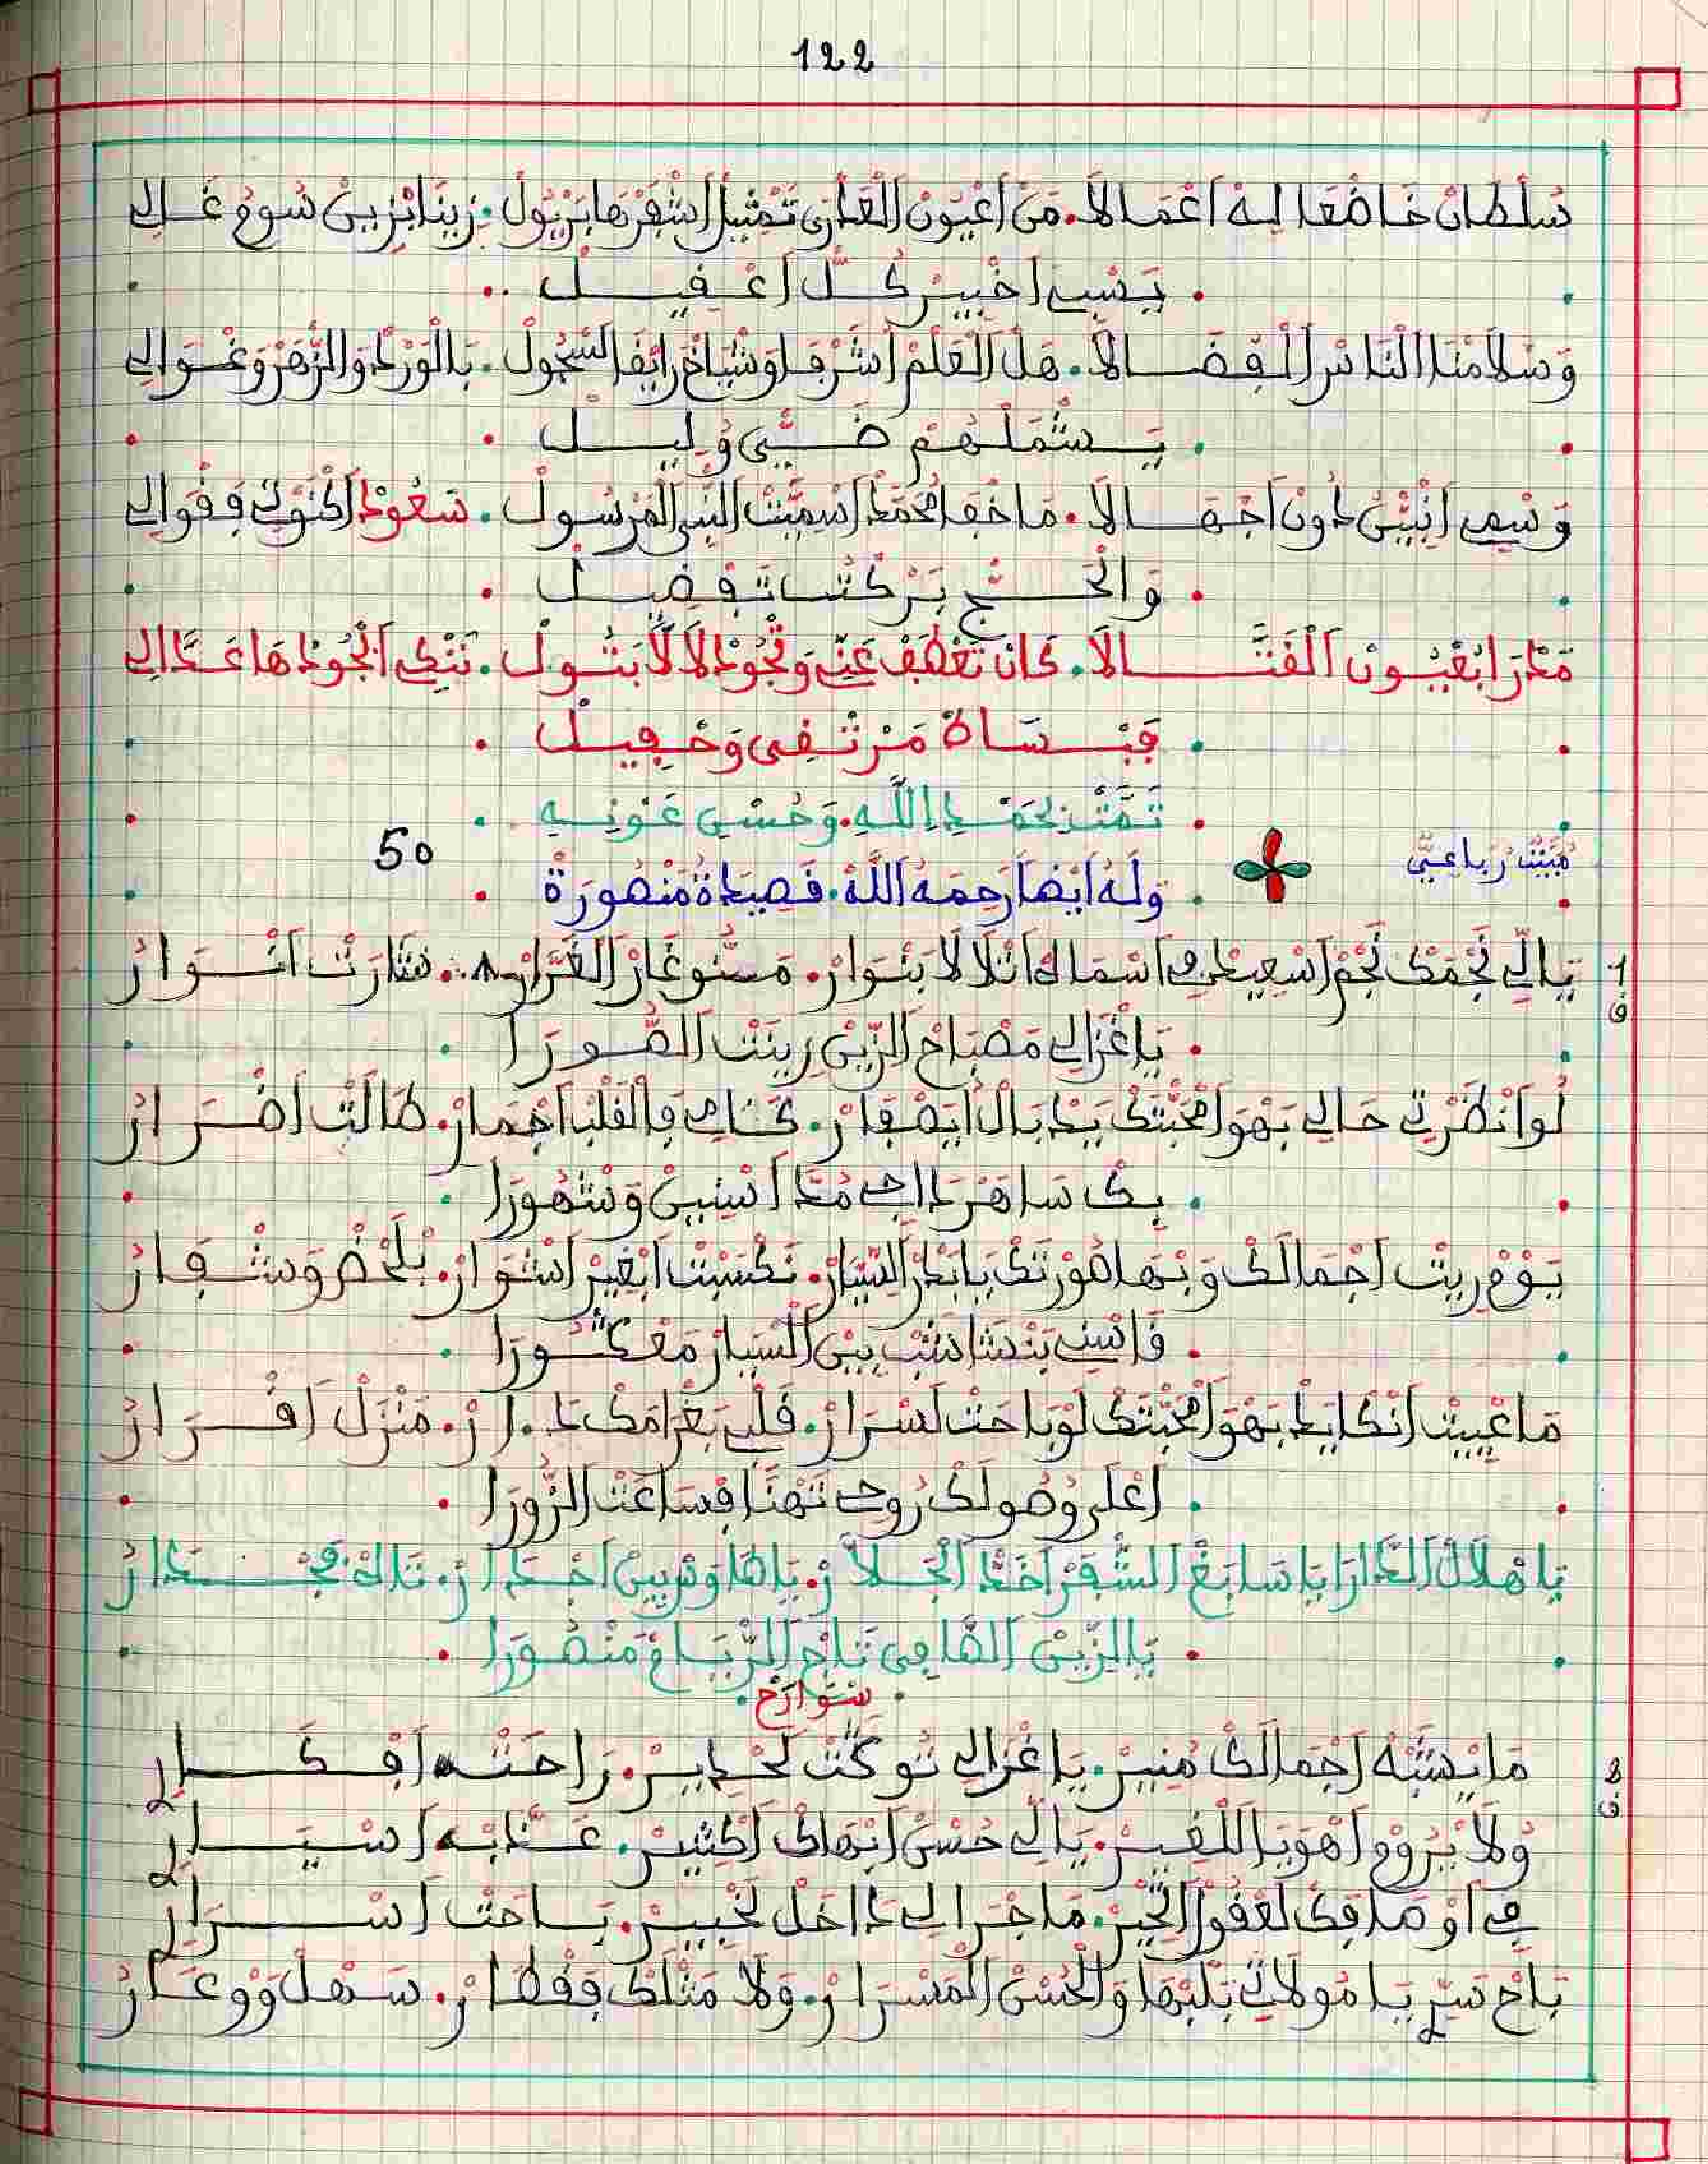 122
سُلْطَانْ خَاضْعَا لِيهْ اَعْمَالَا. مَنْ اَعْيُونْ الْعَذْرَى تَمْثِيلْ اَشْفَرْهَا بَرْيُولْ. زِينَا بْزِينْ سُومُ غَالِي
يَسْبِي اَخْبِيرْ كُلّْ اَعْقِيلْ
وَسْلَامْنَا النَّاسْ الْفْضَالَا. هَلْ الْعَلْمْ اَشْرَفَا وَشْيَاخْ رَايْقَا السّْجُولْ. بَالْوَرْدْ وَالزّْهَرْ وَغْوَالِي
يَشْمَلْهُمْ ضَيّْ وُلِيلْ
وَسْمِي اَنْبَيّْنُ دُونْ اَجْهَالَا. مَا خْفَا مُحَمَّدْ اَسْمِيّْتْ النّْبِي الْمَرْسُولْ. سَعُودْ اَكْنَوْتِي فَقْوَالِي
وَالْحَجّْ بَرْكْتُ تَفْضِيلْ
مَدْرَا بْعْيُونْ الْقَتَّالَا. كَانْ تَعْطَفْ عَنِّي وَتْجُودْ لَالَّا بَتُولْ. نَنْكِي الْحُودْهَا عَدَّالِي
فَبْسَاطْ مَرْتْقِي وَحْفِيلْ
تَمَّتْ بِحَمْدِ اللَّهِ. وَحُسْنِ عَوْنِهِ
مْبَيّْتْ رُبَاعِيّْ
50
وَلَهُ أَيْضًا رَحِمَهُ اللَّهُ. قَصِيدَةُ مَنْصُورَةْ
1 ق
يَالِّي نَجْمَكْ نْجَمْ اَسْعِيدْ فِي اَسْمَاكْ اَتْلَالَا بَنْوَارْ. مَنُّو غَارْ الْغَرَّارْ. سَارَتْ اَنْوَارُ
يَا غْزَالِي مَصْبَاحْ الزِّينْ زِينَتْ الصُّورَا
لُو اَنْظَرْتِي حَالِي بَهْوَا مْحَبّْتَكْ يَدْبَالْ اَيَصْفَارْ. كَنَّانِي فَالْقَلْبْ اَجْمَارْ. طَالَتْ اَضْرَارُ
بِكْ سَاهَرْ دَاجِي مُدَّا اَسْنِينْ وَشْهُورَا
يَوْمْ رِيتْ اَجْمَالَكْ وَبْهَا صُورْتَكْ يَا بَدْرْ السِّيَارْ. نَكْسِيتْ اَبْغِيرْ اَشْوَارْ. بْلَحْضْ وَشْفَارُ
مَا عْيِيتْ اَنْكَايَدْ بَهْوَا مْحَبّْتَكْ لَوْ بَاحَتْ لَسْرَارْ. قَلْبِي بَغْرَامَكْ دَارْ. مَنْزَلْ اَقْرَارُ
اَعْلَى وُصُولَكْ رُوحِي تَهْنَا فْسَاعَتْ الزُّورَا
يَا هْلَالْ الدَّارَا يَا سَابَغْ الشّْفَرْ اَخَدّْ الْجَلَّارْ. يَا طَاوَسْ بِينْ اَجْدَارْ. تَاكْ فَجْدَارُ
يَا الزِّينْ الصَّافِي تَاجْ الرّْيَامْ مَنْصُورَا
سْوَارَحْ
2 ق
مَا يْشَبْهْ اَجْمَالَكْ مْنِيرْ. يَا غْزَالِي تُوكَتْ لَحْدِيرْ. رَاحْتْ اَفْكَارِي
وُلَا يْرُومْ اَهْوَيَا اللْقِيرْ. يَالِّي حُسْنْ اَبْهَاكْ اَكْثِيرْ. عَدَّبْ اَسْيَارِي
فِي اَوْصَافَكْ لَعْقُولْ اَتْحِيرْ. مَا جْرَا لِي دَاخَلْ لَخْبِيرْ. بَاحَتْ اَسْرَارِي
بَاحْ سَرِّي يَا مُولَاتِي بَلْبْهَا وَالْحُسْنْ الْمَسْرَارْ. وَلَا مَثْلَكْ فَقْطَارْ. سَهْلْ وَوْعَارُ